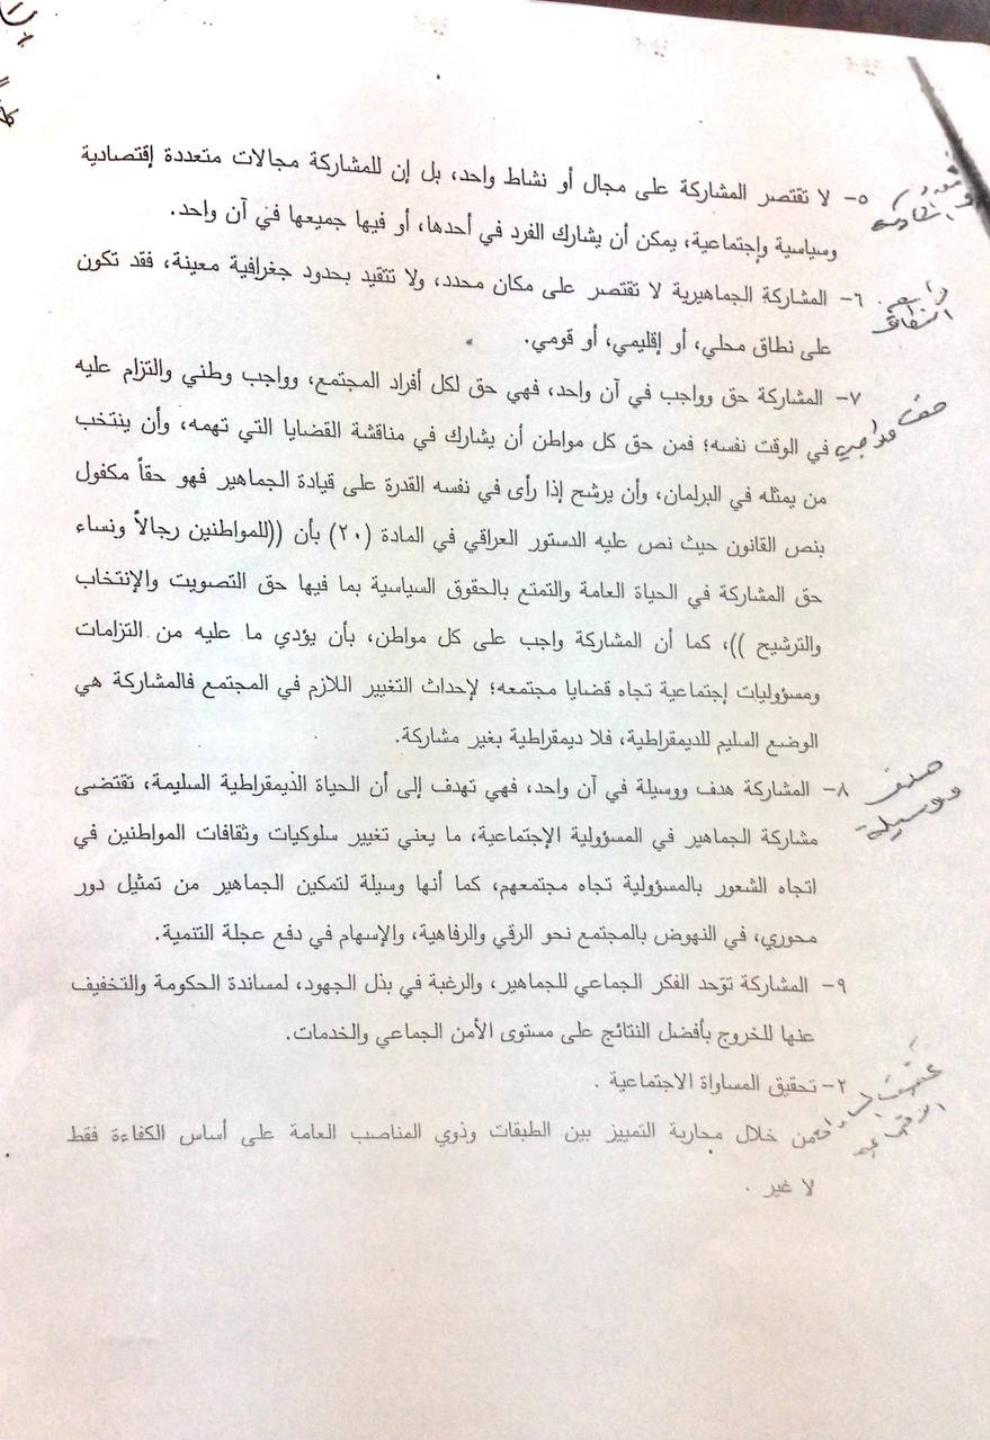 ٥- لا تقتصر المشاركة على مجال أو نشاط واحد، بل إن للمشاركة مجالات متعددة إقتصادية
وسياسية وإجتماعية، يمكن أن يشارك الفرد في أحدها، أو فيها جميعها في آن واحد.
٦- المشاركة الجماهيرية لا تقتصر على مكان محدد، ولا تتقيد بحدود جغرافية معينة، فقد تكون
على نطاق محلي، أو إقليمي، أو قومي.
واسعة
النطاق
٧- المشاركة حق وواجب في آن واحد، فهي حق لكل أفراد المجتمع، وواجب وطني والتزام عليه
في الوقت نفسه؛ فمن حق كل مواطن أن يشارك في مناقشة القضايا التي تهمه، وأن ينتخب
حق
وواجب
من يمثله في البرلمان، وأن يرشح إذا رأى في نفسه القدرة على قيادة الجماهير فهو حقاً مكفول
بنص القانون حيث نص عليه الدستور العراقي في المادة (٢٠) بأن ((للمواطنين رجالاً ونساء
حق المشاركة في الحياة العامة والتمتع بالحقوق السياسية بما فيها حق التصويت والإنتخاب
والترشيح ))، كما أن المشاركة واجب على كل مواطن، بأن يؤدي ما عليه من التزامات
ومسؤوليات إجتماعية تجاه قضايا مجتمعه؛ لإحداث التغيير اللازم في المجتمع فالمشاركة هي
الوضع السليم للديمقراطية، فلا ديمقراطية بغير مشاركة.
٨- المشاركة هدف ووسيلة في آن واحد، فهي تهدف إلى أن الحياة الديمقراطية السليمة، تقتضى
مشاركة الجماهير في المسؤولية الإجتماعية، ما يعني تغيير سلوكيات وثقافات المواطنين في
هدف
ووسيلة
اتجاه الشعور بالمسؤولية تجاه مجتمعهم، كما أنها وسيلة لتمكين الجماهير من تمثيل دور
محوري، في النهوض بالمجتمع نحو الرقي والرفاهية، والإسهام في دفع عجلة التنمية.
٩- المشاركة توّحد الفكر الجماعي للجماهير، والرغبة في بذل الجهود، لمساندة الحكومة والتخفيف
عنها للخروج بأفضل النتائج على مستوى الأمن الجماعي والخدمات.
٢- تحقيق المساواة الاجتماعية .
من خلال محاربة التمييز بين الطبقات وذوي المناصب العامة على أساس الكفاءة فقط
لا غير .